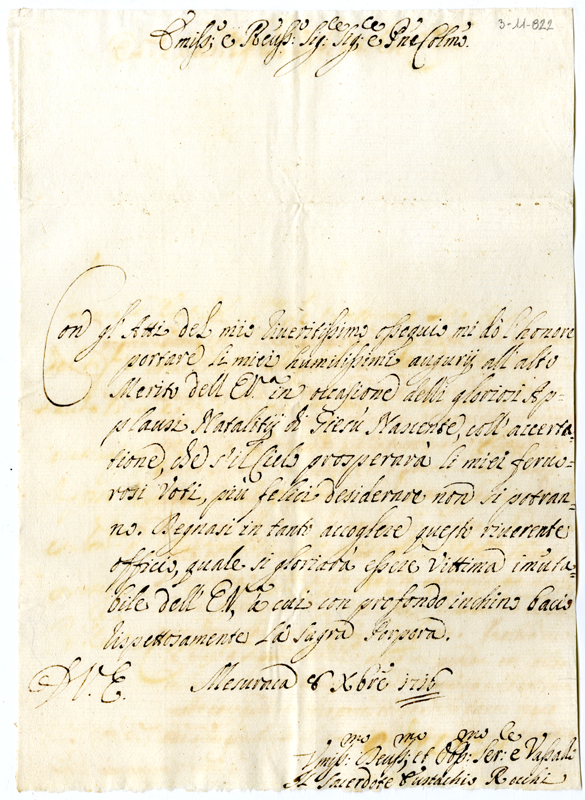 3-11-822
Emiss:o e Reuss:o Sig:re Sig:re e Pne Colmo
Con gl'Atti del mio riueritissimo ossequio mi dò l'honore
portare li miei humilissimi augurij all'alto
Merito dell'EV.a in occasione delli gloriosi Ap=
plausi Natalitij di Giesù Nascente, coll'accerta=
tione, che s'il Cielo prosperarà li miei feruo=
rosi Voti, più felici desiderare non si potran=
no. Degnasi in tanto accogliere questo riuerente
officio, quale si gloriarà essere Vittima imuta=
bile dell'EV. à cui con profondo inchino bacio
rispettosamente La Sagra Porpora.
D V. E. Mesuraca 8 Xbre 1716
Vmiliss:mo Deuotiss:mo et Obb:mo Ser:re e Vassallo
Il Sacerdote Eustachio Rocchi